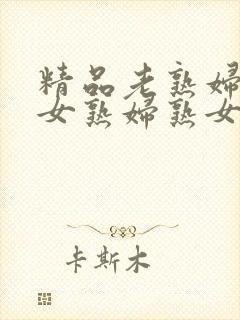 精品老熟妇
女熟妇熟女
卡斯木